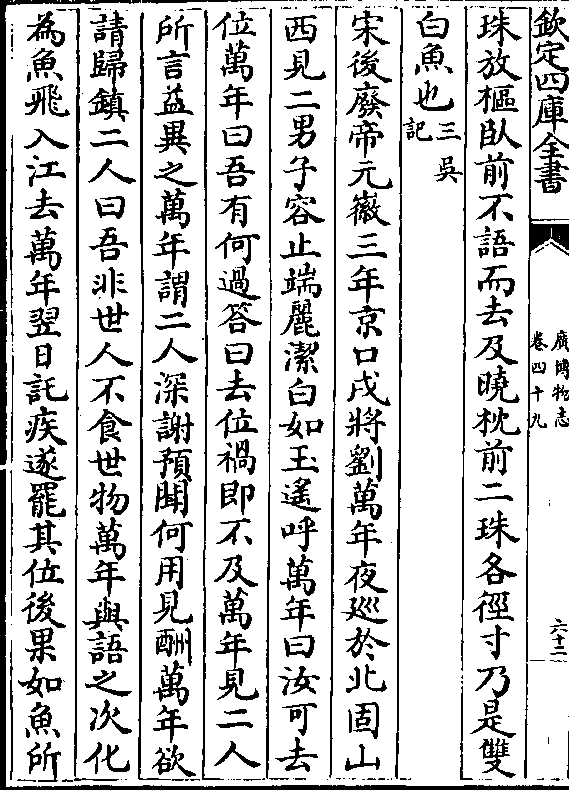 欽定四庫全書
廣博物志
卷四十九
六十二
珠放樞臥前不語而去及曉枕前二珠各徑寸乃是雙
白魚也三吳記
宋後廢帝元徽三年京口戍將劉萬年夜廵於北固山
西見二男子容止端麗潔白如玉遙呼萬年曰汝可去
位萬年曰吾有何過答曰去位禍即不及萬年見二人
所言益異之萬年謂二人深謝預聞何用見酬萬年欲
請歸鎮二人曰吾非世人不食世物萬年與語之次化
為魚飛入江去萬年翌日託疾遂罷其位後果如魚所